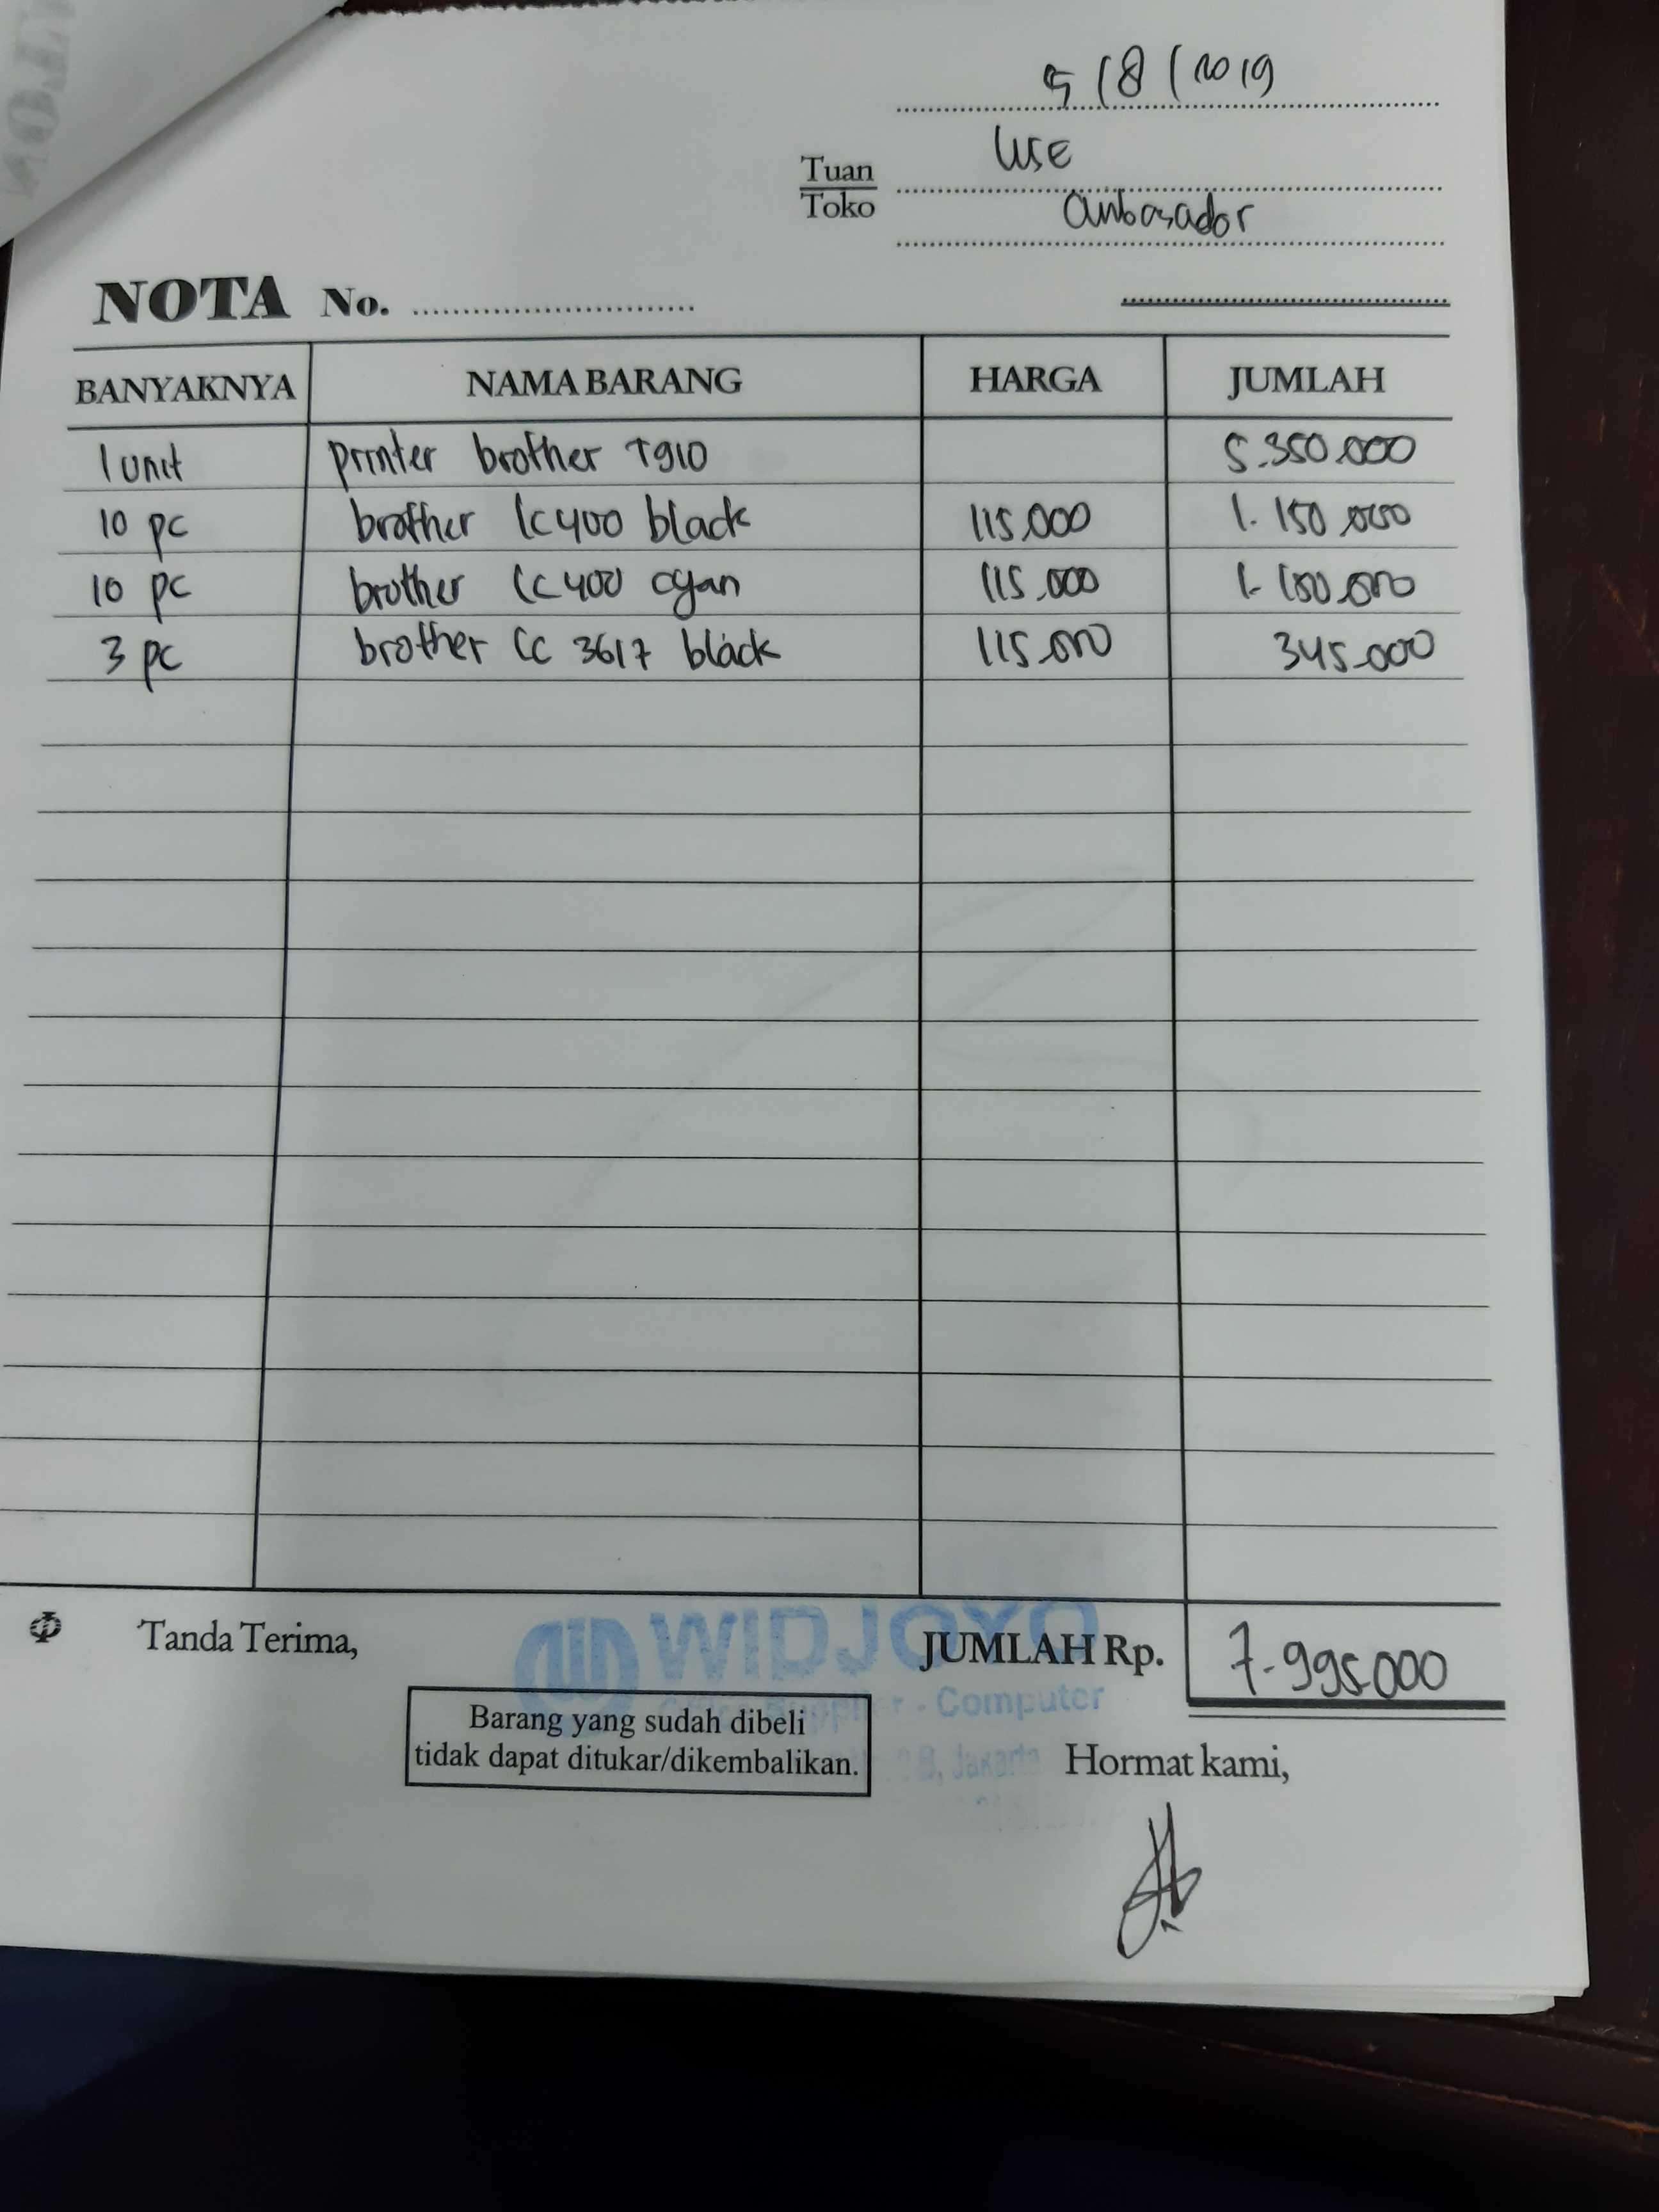 5/8/2019
Tuan
Toko
Use
Ambasador
NOTA No.
BANYAKNYA NAMA BARANG HARGA JUMLAH
1 unit printer brother T910 5.350.000
10 pc brother lc 400 black 115.000 1.150.000
10 pc brother lc 400 cyan 115.000 1.150.000
3 pc brother lc 3617 black 115.000 345.000
Tanda Terima, WIDJOYO JUMLAH Rp. 7.995.000
Office Supplier - Computer
Barang yang sudah dibeli
tidak dapat ditukar/dikembalikan.
Jakarta
Hormat kami,